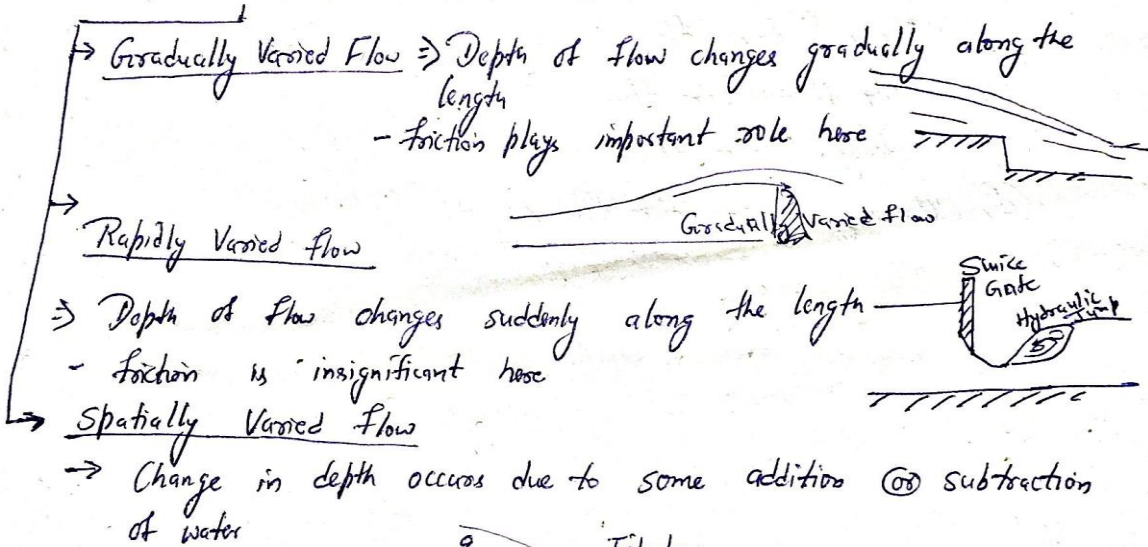 → Gradually Varied Flow ⇒ Depth of flow changes gradually along the
length
- friction plays important role here
→ Rapidly Varied flow
Gradually Varied flow
⇒ Depth of flow changes suddenly along the length
Sluice
Gate
Hydraulic
Jump
- friction is insignificant here
→ Spatially Varied Flow
→ Change in depth occurs due to some addition or subtraction
of water